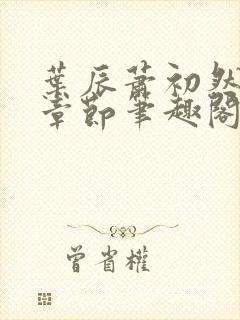 葉辰蕭初然
章節筆趣閣
曾省權